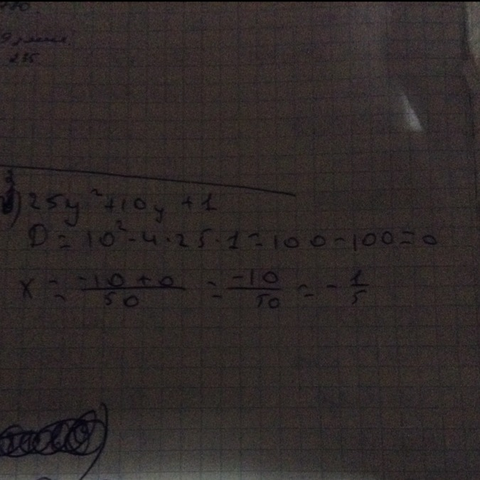 25y²+10y+1
D=10²-4·25·1=100-100=0
x = -10+0/50 = -10/50 = -1/5